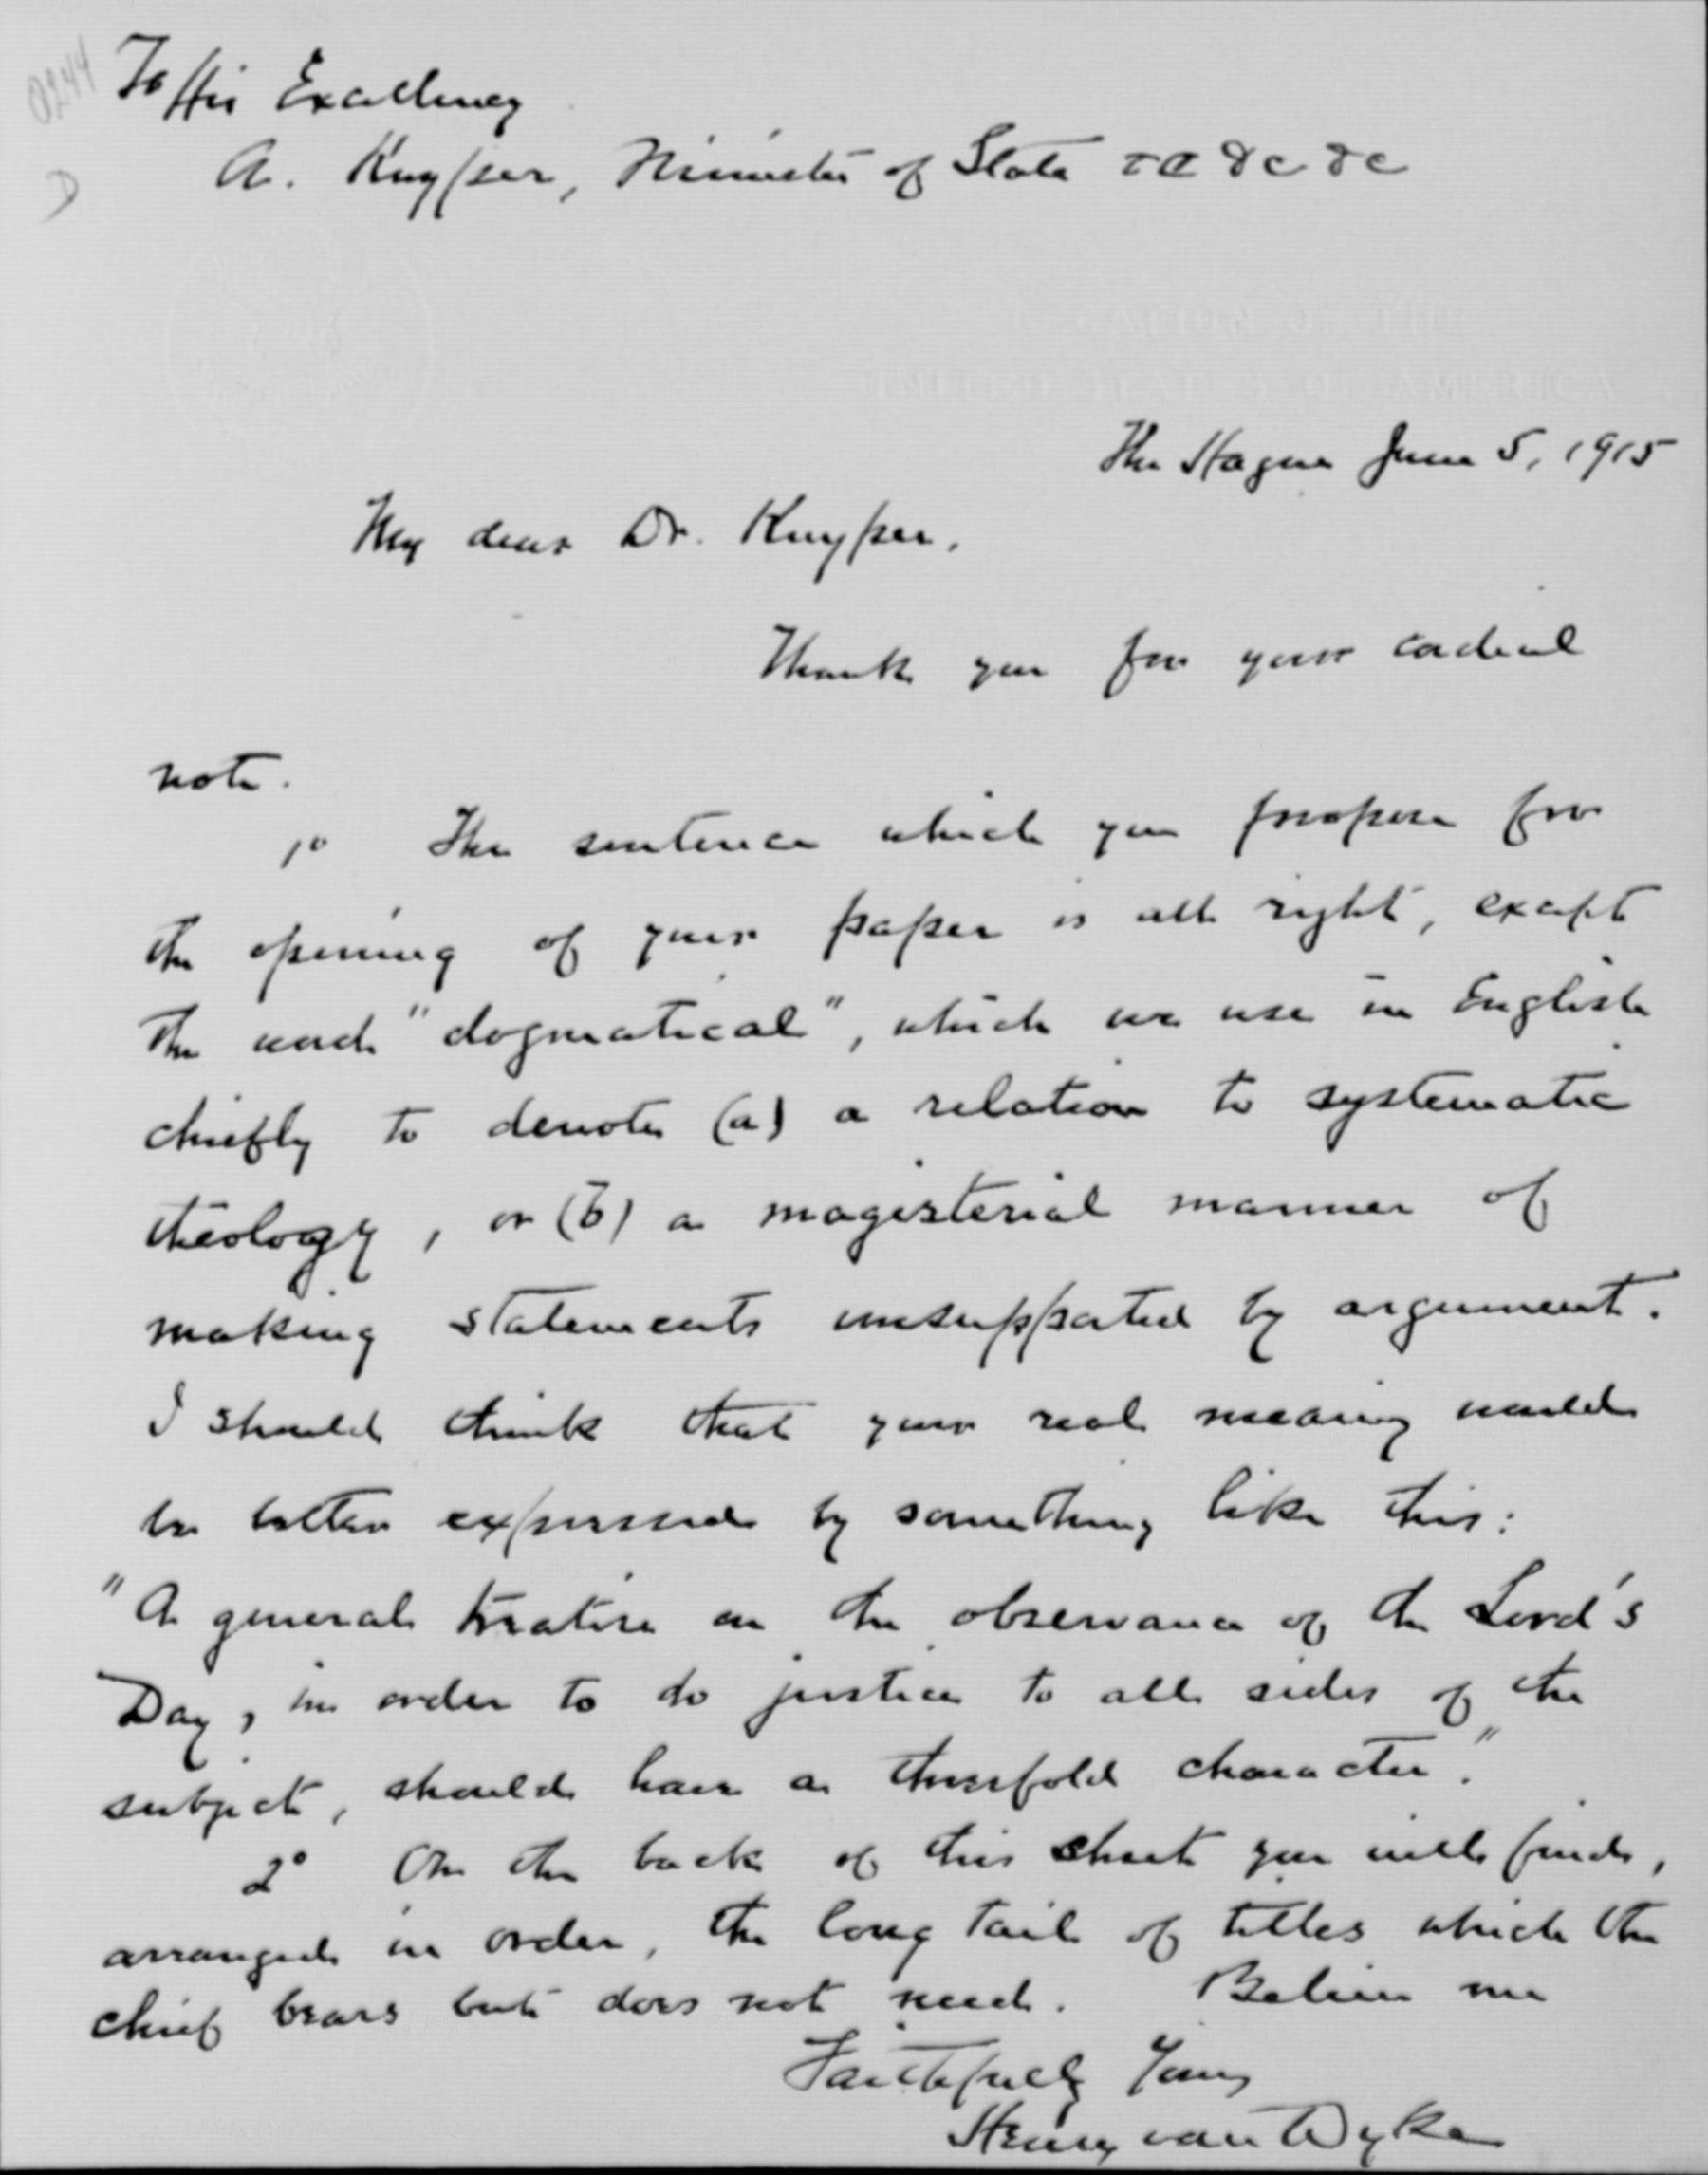 0244
To His Excellency
A. Kuyper, Minister of State &c &c &c
LEGATION OF THE
UNITED STATES OF AMERICA
The Hague June 5, 1915
My dear Dr. Kuyper,
Thank you for your cordial
note.
1° The sentence which you propose for
the opening of your paper is all right, except
the word "dogmatical", which we use in English
chiefly to denote (a) a relation to systematic
theology, or (b) a magisterial manner of
making statements unsupported by argument.
I should think that your real meaning would
be better expressed by something like this:
"A general treatise on the observance of the Lord's
Day, in order to do justice to all sides of the
subject, should have a threefold character."
2° On the back of this sheet you will find,
arranged in order, the long tail of titles which the
chief bears but does not need. Believe me
Faithfully Yours
Henry van Dyke